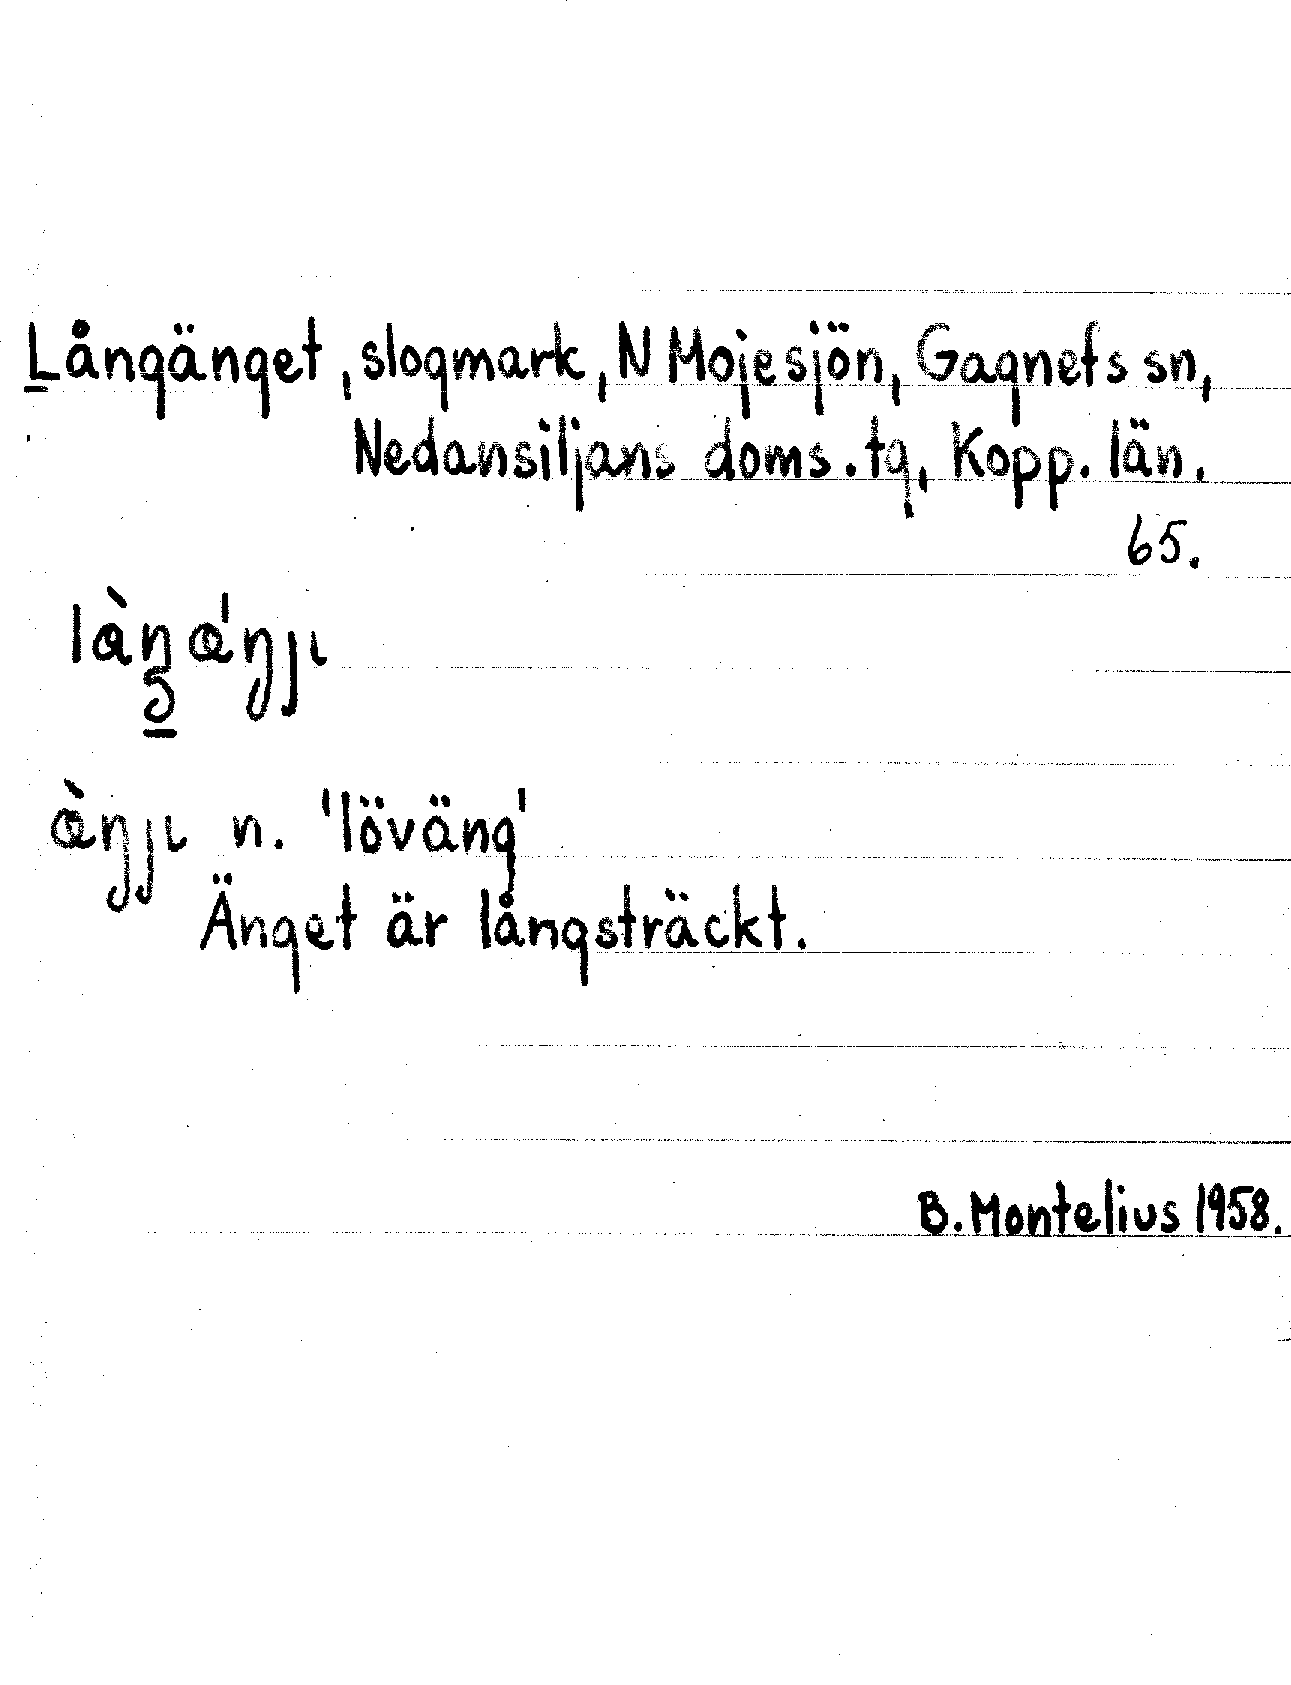 Långänget, slogmark, N Mojesjön, Gagnefs sn,
Nedansiljans doms.tg, Kopp. län.
65.
n. 'löväng'
Änget är långsträckt.
B. Montelius 1958.